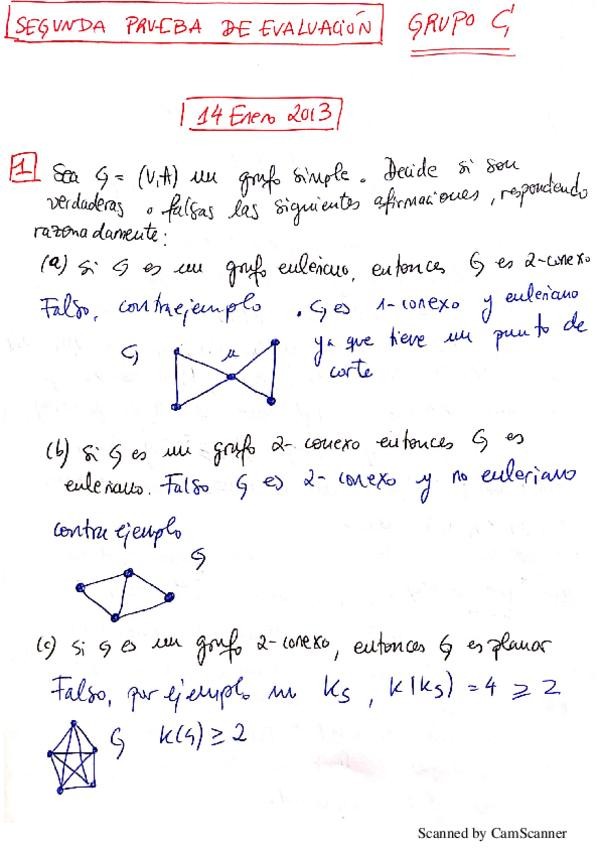 SEGUNDA PRUEBA DE EVALUACIÓN GRUPO G
14 Enero 2013
1 Sea G = (V,A) un grafo simple. Decide si son
verdaderas o falsas las siguientes afirmaciones, respondendo
razonadamente:
(a) Si G es un grafo euleriano, entonces G es 2-conexo
Falso, contraejemplo . G es 1-conexo y euleriano
G u ya que tiene un punto de
corte
(b) Si G es un grafo 2-conexo entonces G es
euleriano. Falso G es 2-conexo y no euleriano
contraejemplo
G
(c) Si G es un grafo 2-conexo, entonces G es planar
Falso, por ejemplo un K5, K(K5) = 4 ≥ 2
G K(G) ≥ 2
Scanned by CamScanner